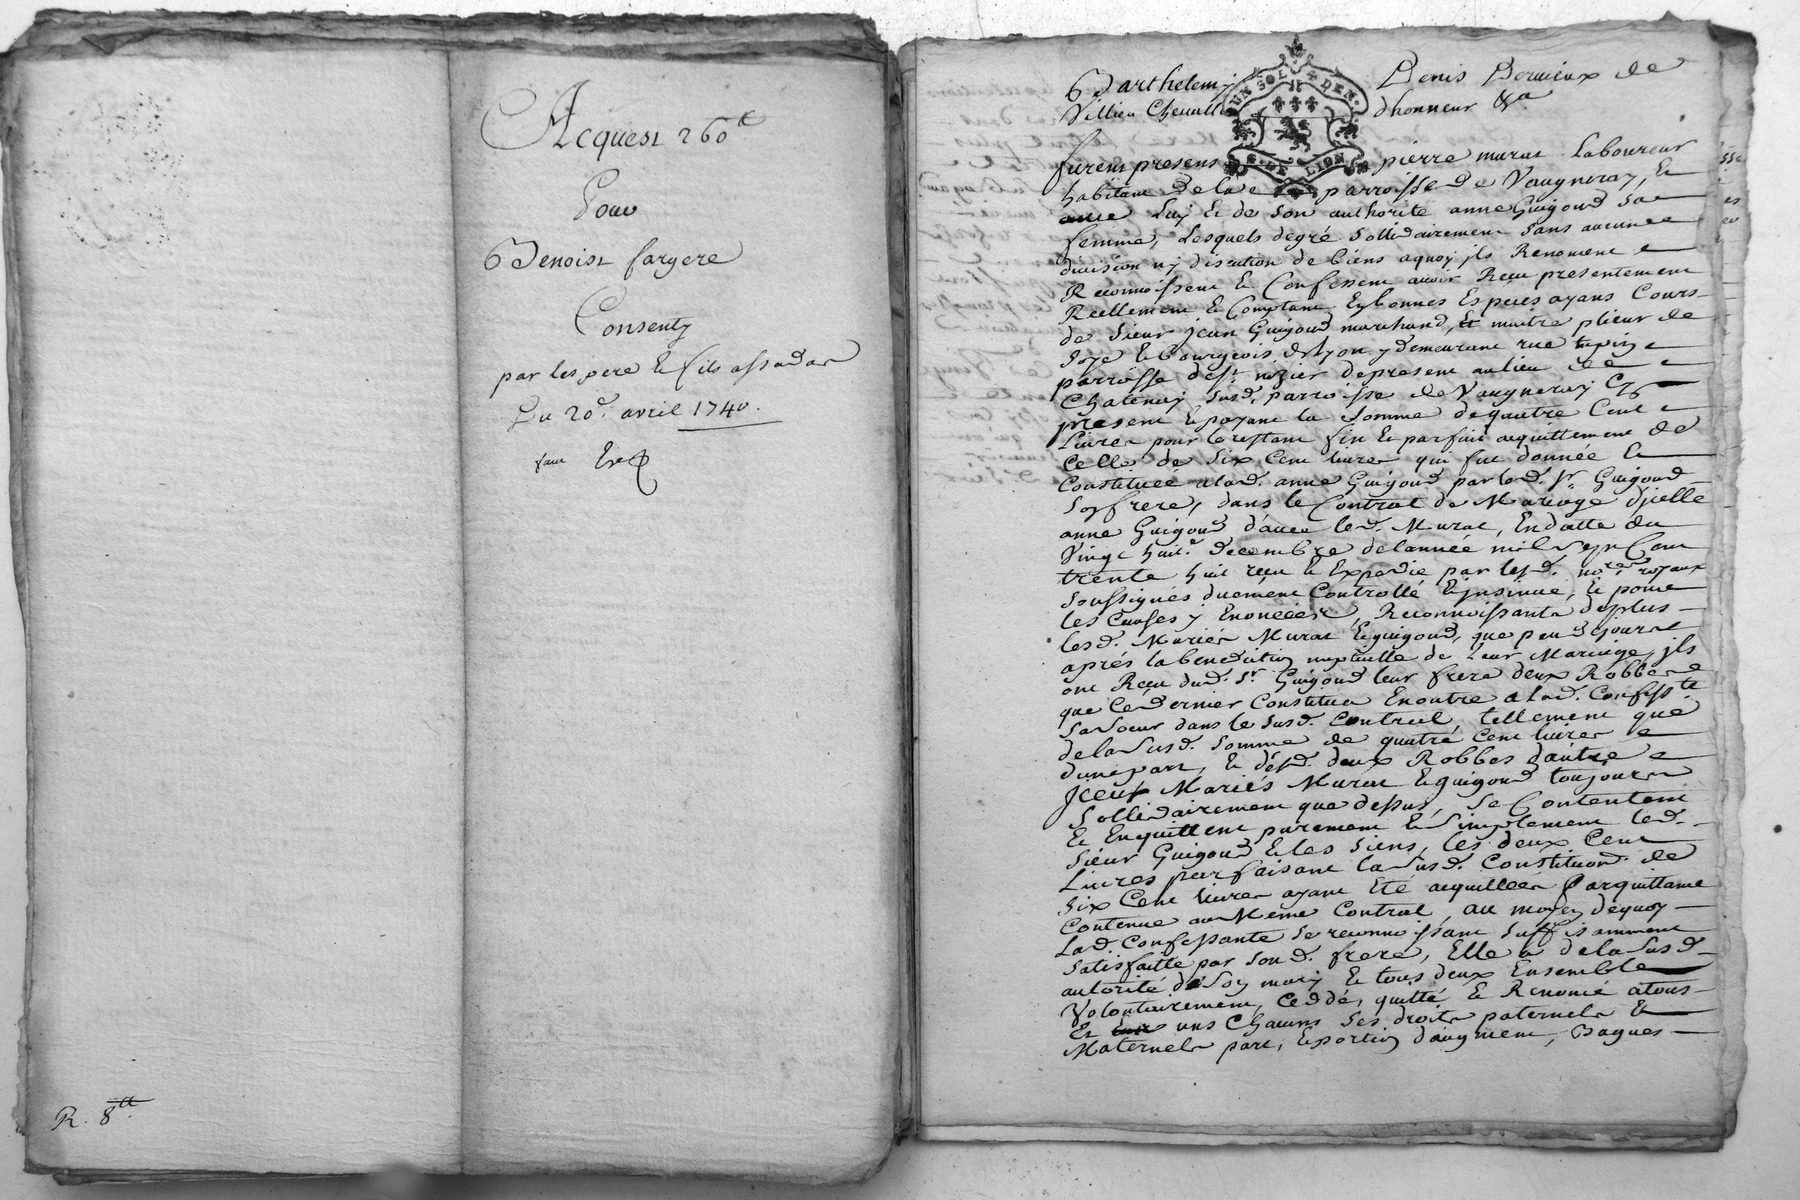 Acquest 260tt
Pour
Benoist fargere
Consenty
par les pere et fils assada
Du 20e. avril 1740.
R. 8tt
UN SOL 4 DEN.
G. DE LION
Barthelemy Denis Dervieux de
Villieu Chevallier dhonneur &a
furent presens pierre murat Laboureur
habitant de la parroisse de Vaugneray, Et
Luy Et de son authorité anne Guigoud sa
femme, Lesquels degré sollidairement sans aucune
division ny discution de biens aquoy jls Renoncent
Reconnoissent Et Confessent avoir Reçu presentement
Reellement Et Comptant En bonnes Especes ayans Cours
de sieur jean Guigoud marchand, Et maitre plieur de
soye Et bourgeois de lyon y demeurant rue tupin
parroisse de st. nizier de present au lieu de
Chatenay susd. parroisse de Vaugneray Cy
present Et payant la somme de quatre Cent
Livres pour le restant fin Et parfait acquittement de
Celle de six Cent livres qui fut donnée Et
Constituée a lad. anne Guigoud par led. sr. Guigoud
son frere, dans le Contrat de Mariage d'jcelle
anne Guigoud d'avec led. Murat, En datte du
Vingt huit.e decembre de lannée mil sept Cent
trente huit reçu Et Expedié par lesd. nores. royaux
soussignés duement Controllé Et jnsinué, Et pour
les Causes y Enoncées, Reconnoissants de plus
lesd. Mariés Murat Et guigoud, que peu de jours
aprés la benediction nuptialle de leur Mariage, jls
ont Reçu dud. sr. Guigoud leur frere deux Robbes
que Ce dernier Constitua En outre a lad. Confess.te
sa soeur dans le susd. Contrat, tellement que
de la susd. somme de quatre Cent livres
d'une part, Et desd. deux Robbes d'autre
Jceux Mariés Murat Et guigoud toujours
sollidairement que dessus, se Contentent
Et En quittent purement Et simplement led.
sieur Guigoud Et les siens, les deux Cent
Livres parfaisant la susd. Constitution de
six Cent livres ayant Eté acquittées par quittance
Contenue au Meme Contrat, au moyen de quoy
Lad. Confessante se reconnoissant suffisamment
satisfaitte par sond. frere, Elle a de la susd.
autorité de son mary Et tous deux Ensemble
Volontairement, Ceddé, quitté Et Renoncé a tous
Et uns Chacuns ses droits paternels Et
Maternels part, Et portion d'augment, Bagues